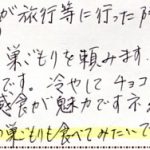 が旅行等に行った際
巣ごもりを頼みます
です。冷やしてチョコ
感食が魅力です
の巣ごもりも食べてみたいで